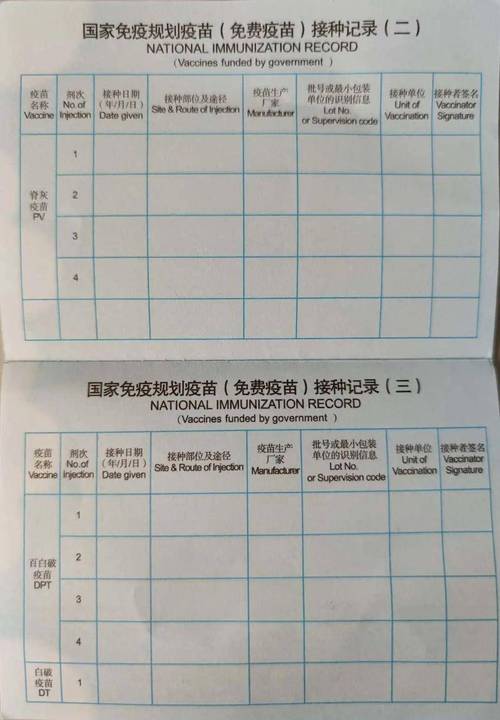 国家免疫规划疫苗（免费疫苗）接种记录（二）
NATIONAL IMMUNIZATION RECORD
（Vaccines funded by government ）
疫苗名称 Vaccine 剂次 No.of Injection 接种日期（年/月/日）Date given 接种部位及途径 Site & Route of Injection 疫苗生产厂家 Manufacturer 批号或最小包装单位的识别信息 Lot No. or Supervision code 接种单位 Unit of Vaccination 接种者签名 Vaccinator Signature
脊灰疫苗 PV
1
2
3
4
国家免疫规划疫苗（免费疫苗）接种记录（三）
NATIONAL IMMUNIZATION RECORD
（Vaccines funded by government ）
疫苗名称 Vaccine 剂次 No.of Injection 接种日期（年/月/日）Date given 接种部位及途径 Site & Route of Injection 疫苗生产厂家 Manufacturer 批号或最小包装单位的识别信息 Lot No. or Supervision code 接种单位 Unit of Vaccination 接种者签名 Vaccinator Signature
百白破疫苗 DPT
1
2
3
4
白破疫苗 DT 1